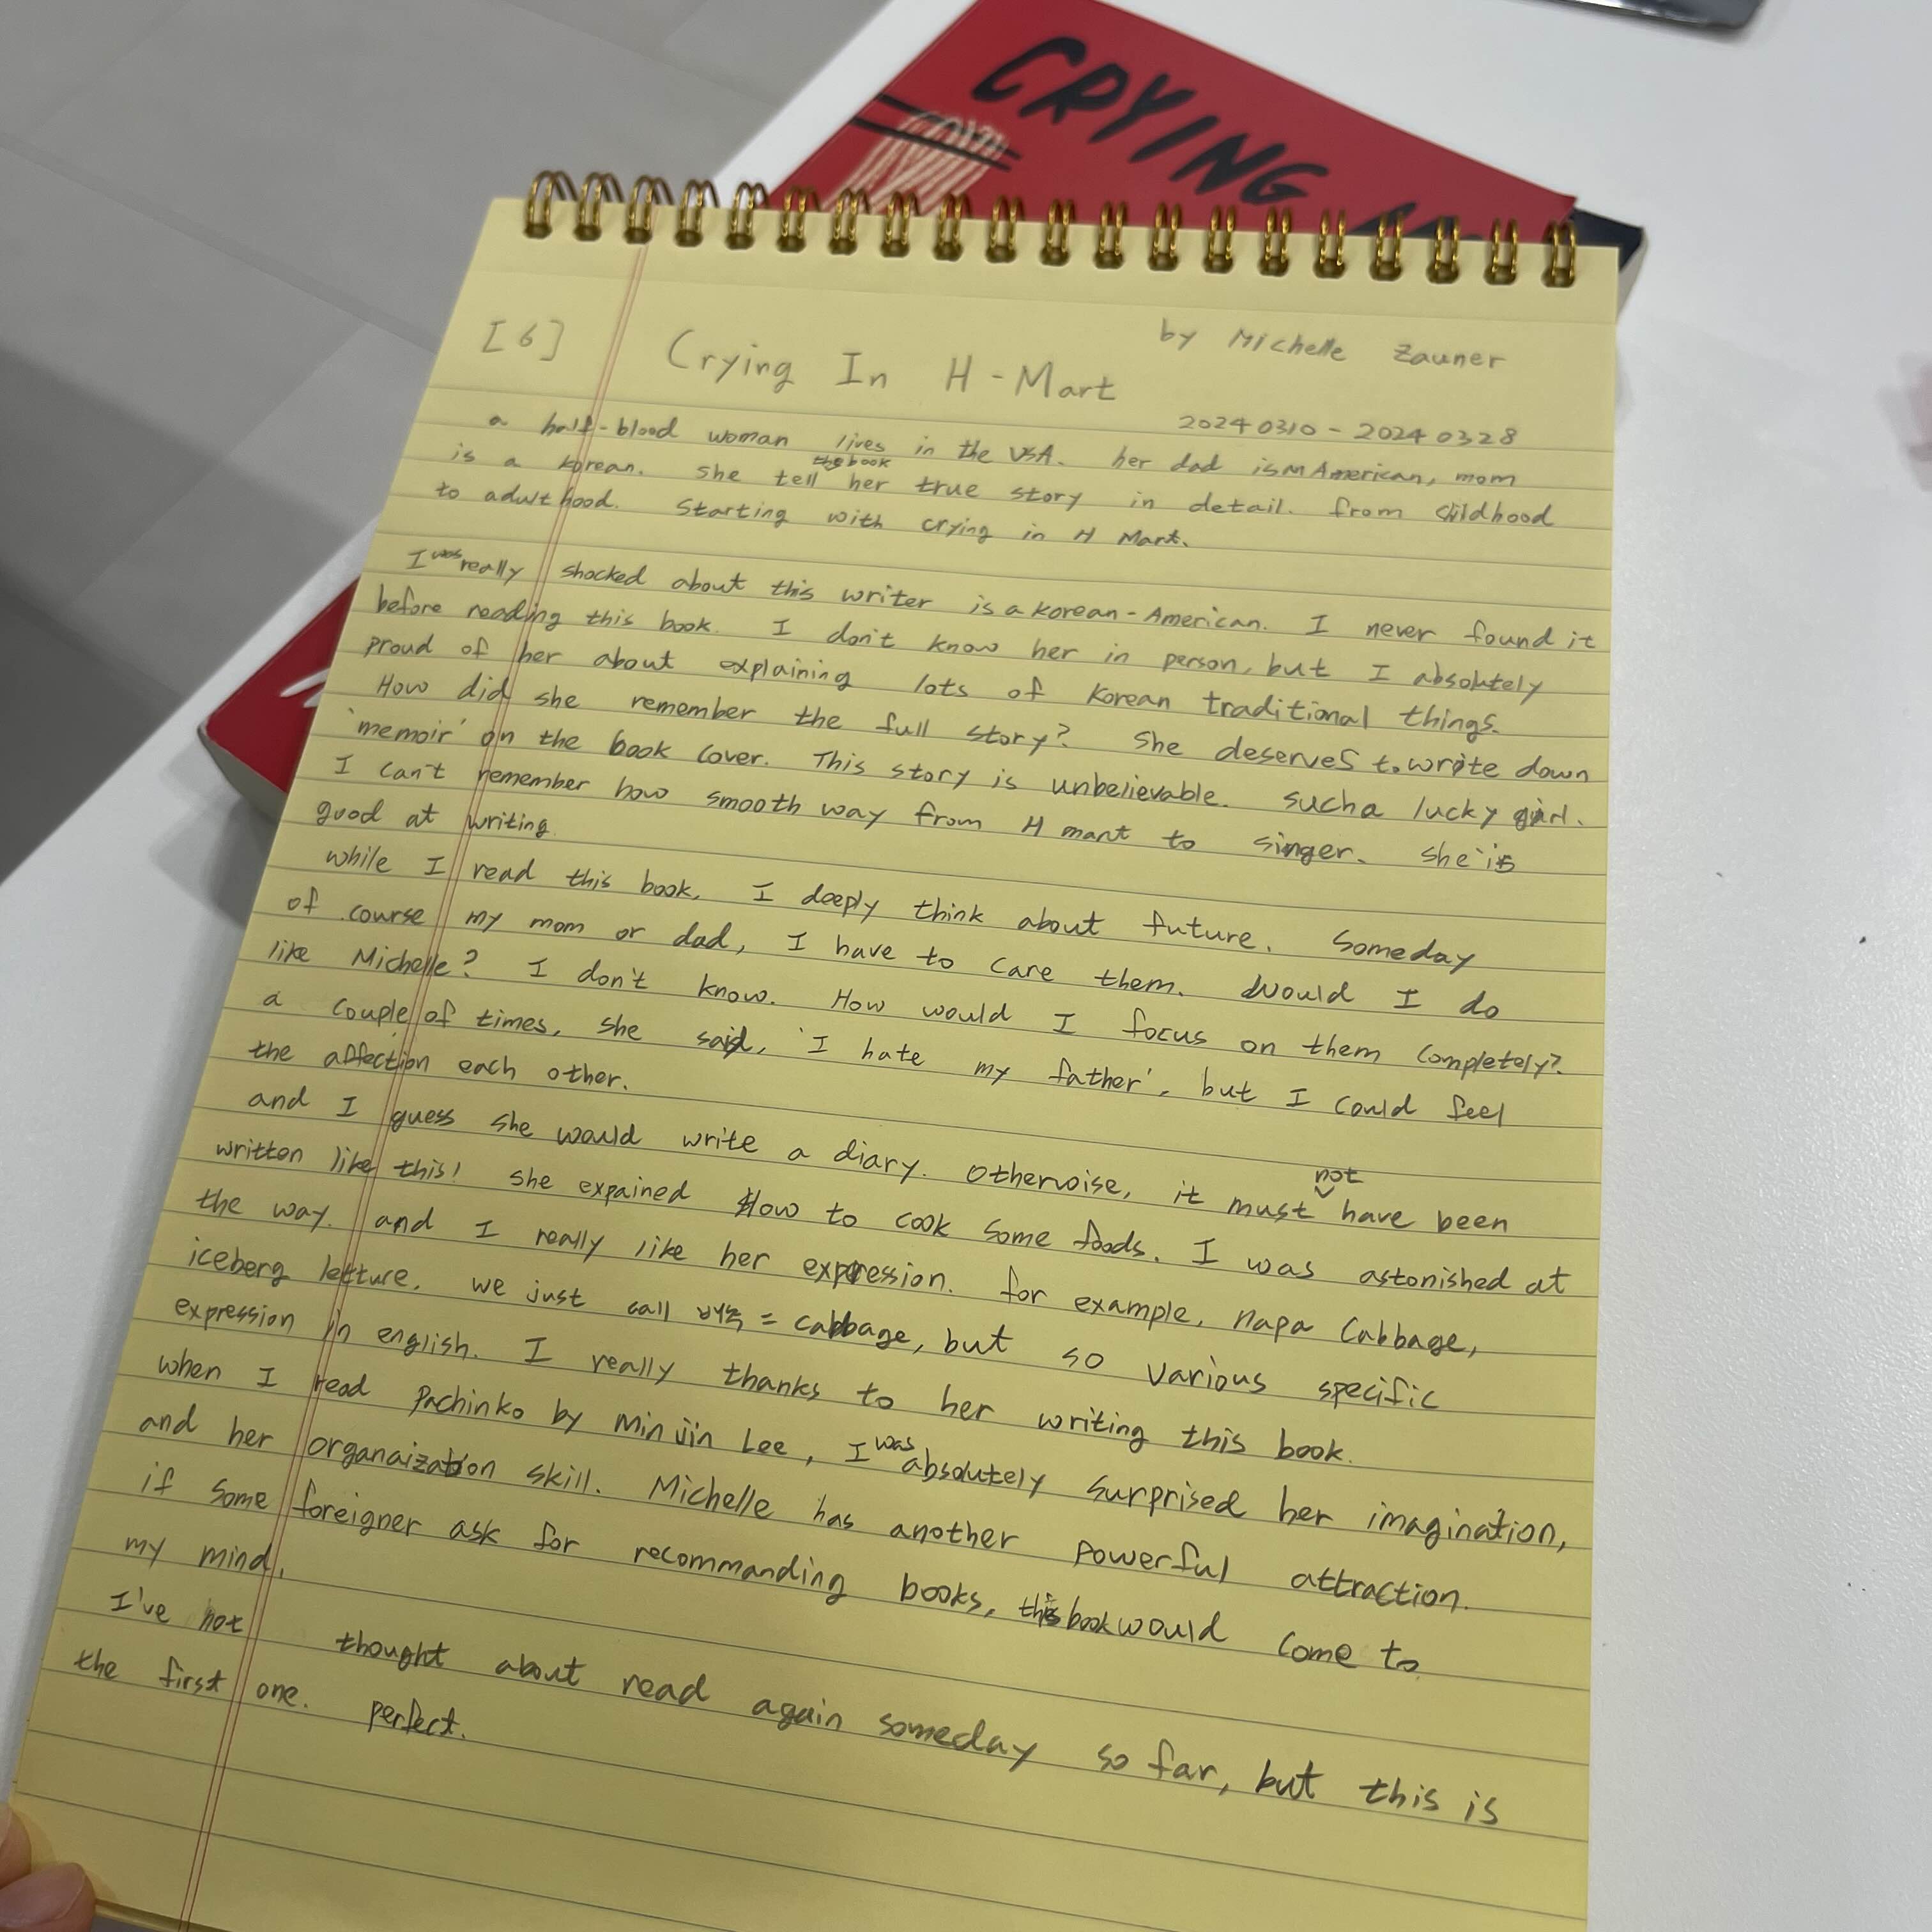 CRYING
[6] Crying In H-Mart by Michelle Zauner
20240310 - 20240328
a half-blood woman lives in the USA. her dad is an American, mom
is a korean. she tell the book her true story in detail. from childhood
to adulthood. Starting with crying in H Mart.
I was really shocked about this writer is a korean-American. I never found it
before reading this book. I don't know her in person, but I absolutely
proud of her about explaining lots of korean traditional things.
How did she remember the full story? She deserves to write down
'memoir' on the book cover. This story is unbelievable. such a lucky girl.
I can't remember how smooth way from H mart to singer. she is
good at writing.
while I read this book, I deeply think about future. Someday
of course my mom or dad, I have to care them. Would I do
like Michelle? I don't know. How would I focus on them completely?
a couple of times, she said, 'I hate my father', but I could feel
the affection each other.
and I guess she would write a diary. Otherwise, it must not have been
written like this! She expained How to cook some foods. I was astonished at
the way. and I really like her expression. for example, napa cabbage,
iceberg letture, we just call 배추 = cabbage, but so various specific
expression in english. I really thanks to her writing this book.
when I read Pachinko by Min Jin Lee, I was absolutely surprised her imagination,
and her organaization skill. Michelle has another powerful attraction.
if some foreigner ask for recommanding books, this book would come to
my mind.
I've not thought about read again someday so far, but this is
the first one. perfect.